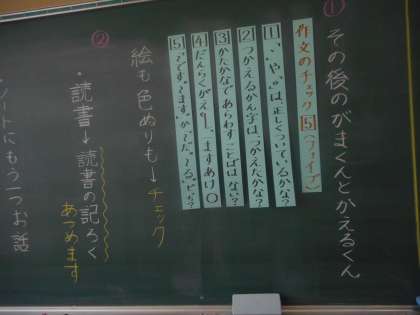 ①
その後のがまくんとかえるくん
作文のチェック5(ファイブ)
1「、」や「。」は、正しくついているかな?
2つかえるかん字は、つかえたかな?
3かたかなであらわすことばはない?
4だんらくがえ、1ますあけ○
絵も色ぬりも→チェック
②
・読書→読書の記ろく
あつめます
ノートにもう一つお話